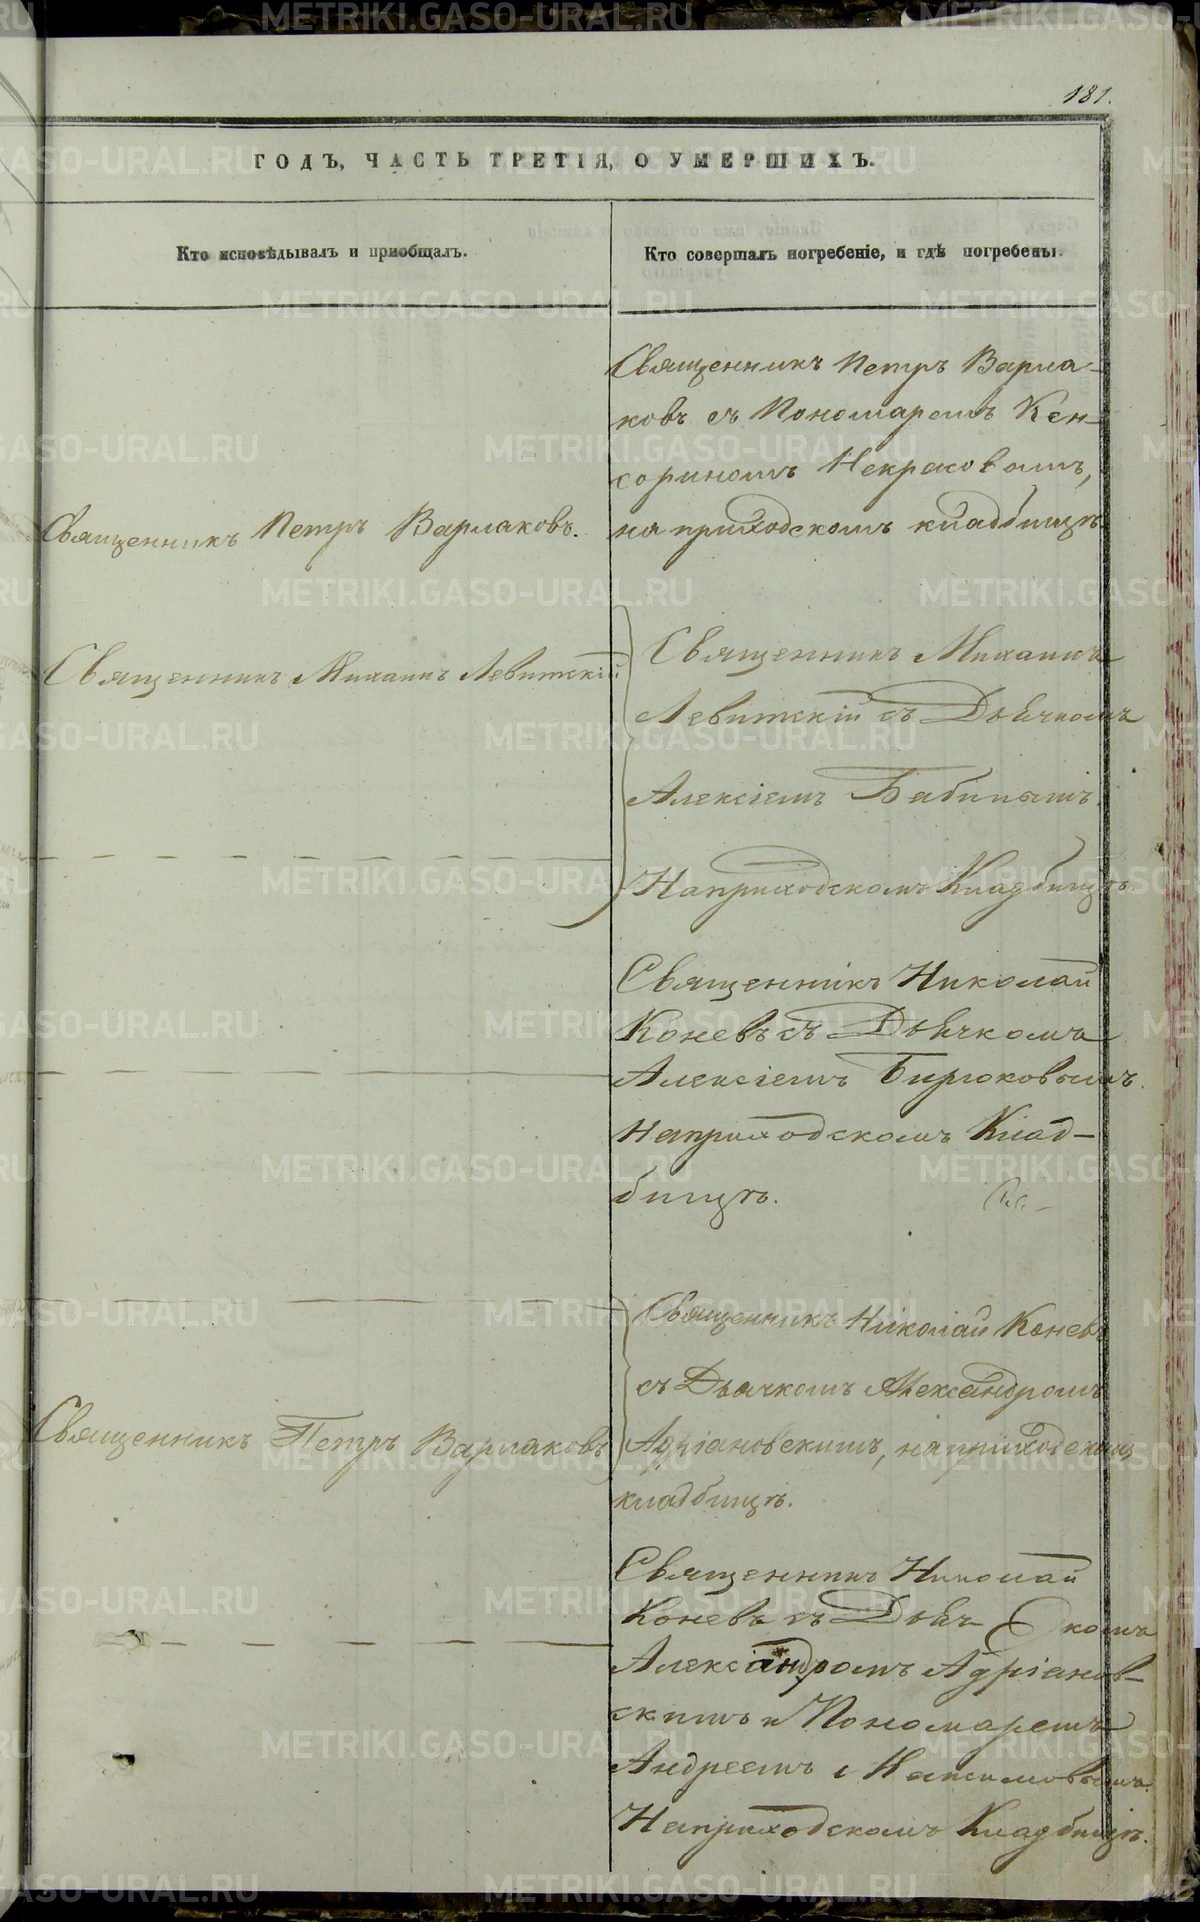 181.
ГОДЪ, ЧАСТЬ ТРЕТІЯ, О УМЕРШИХЪ.
Кто исповѣдывалъ и пріобщалъ.
Кто совершалъ погребеніе, и гдѣ погребены.
Священникъ Петръ Варлаковъ.
Священникъ Петръ Варла-
ковъ съ Пономаремъ Кен-
сориномъ Некрасовымъ,
на приходскомъ кладбищѣ
Священникъ Михаилъ Левитскій
Священникъ Михаилъ
Левитскій съ Дьячкомъ
Алексіемъ Бабинымъ
На приходскомъ Кладбищѣ.
Священникъ Николай
Коневъ съ Дьячкомъ
Алексіемъ Бирюковымъ.
На приходскомъ Клад-
бищѣ.
Священникъ Петръ Варлаковъ
Священникъ Николай Коневъ
съ Дьячкомъ Александромъ
Адріановскимъ, на приходском
кладбищѣ.
Священникъ Николай
Коневъ съ Дьячкомъ
Александромъ Адріанов-
скимъ и Пономаремъ
Андреемъ Максимовымъ.
На приходскомъ Кладбищѣ.
METRIKI.GASO-URAL.RU